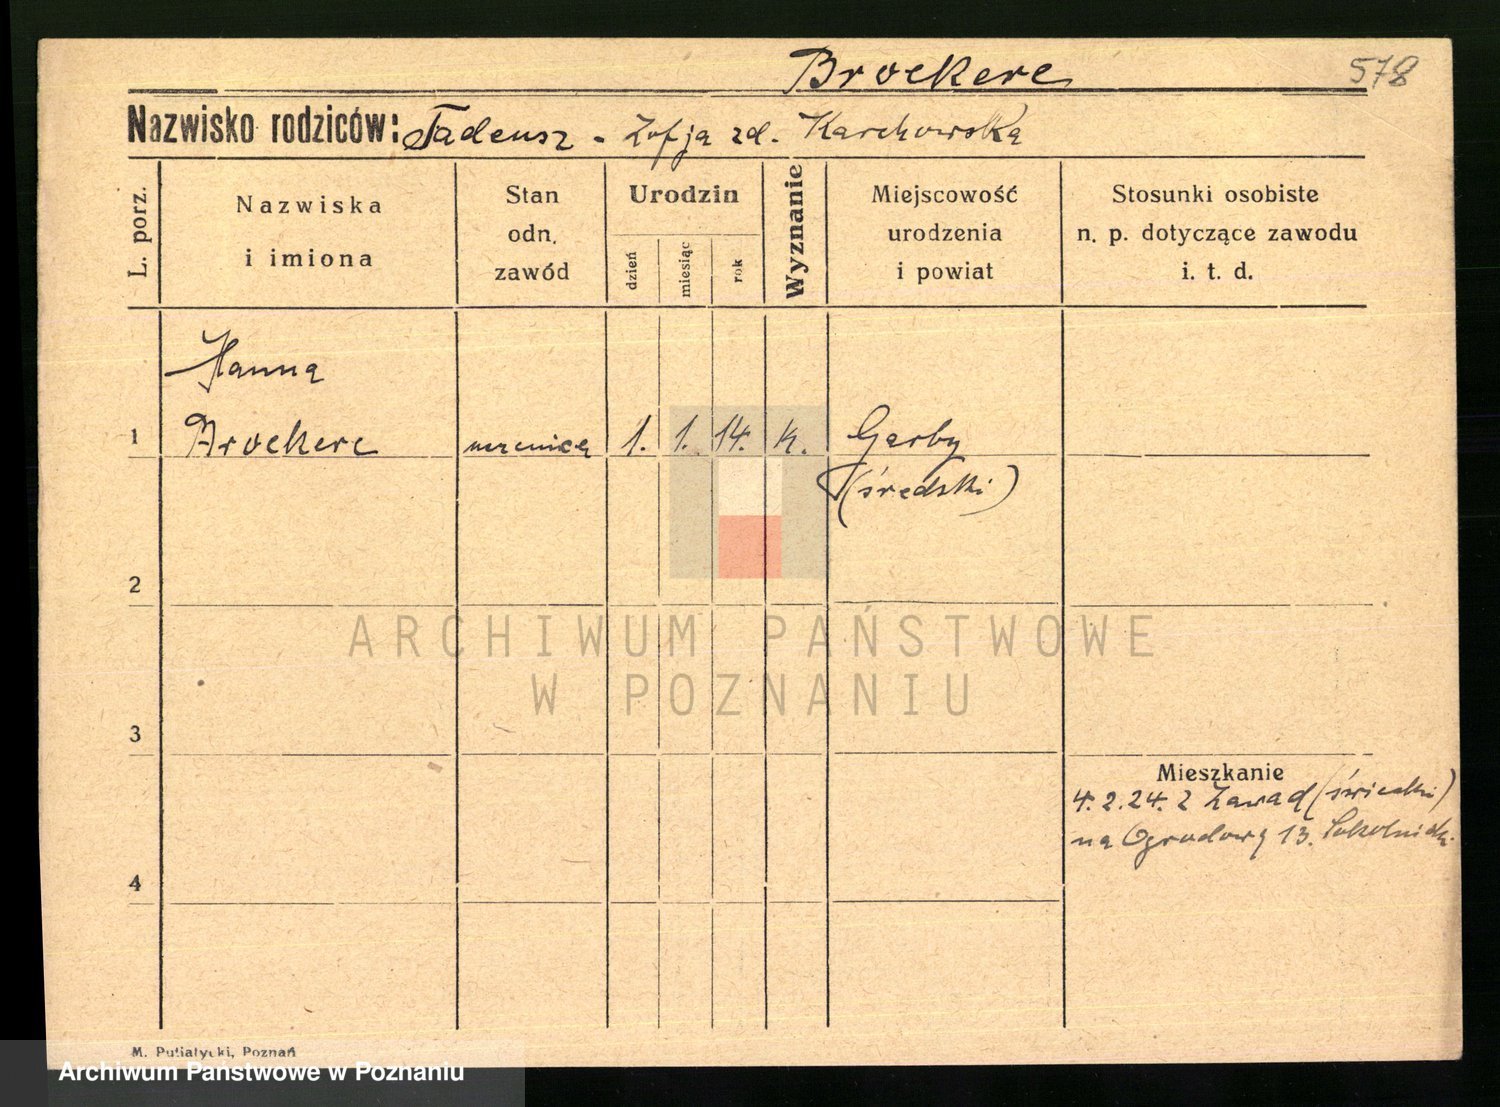 Broekere 578
Nazwisko rodziców: Tadeusz - Zofja zd. Karchowska
L. porz.
Nazwiska
i imiona
Stan
odn.
zawód
Urodzin
dzień
miesiąc
rok
Wyznanie
Miejscowość
urodzenia
i powiat
Stosunki osobiste
n. p. dotyczące zawodu
i. t. d.
Hanna
1 Broekere uczenica 1. 1. 14. k. Garby
(średzki)
2
ARCHIWUM PAŃSTWOWE
W POZNANIU
3
Mieszkanie
4.2.24. z Zawad
na Ogrodową 13.
4
M. Putiatycki, Poznań
Archiwum Państwowe w Poznaniu